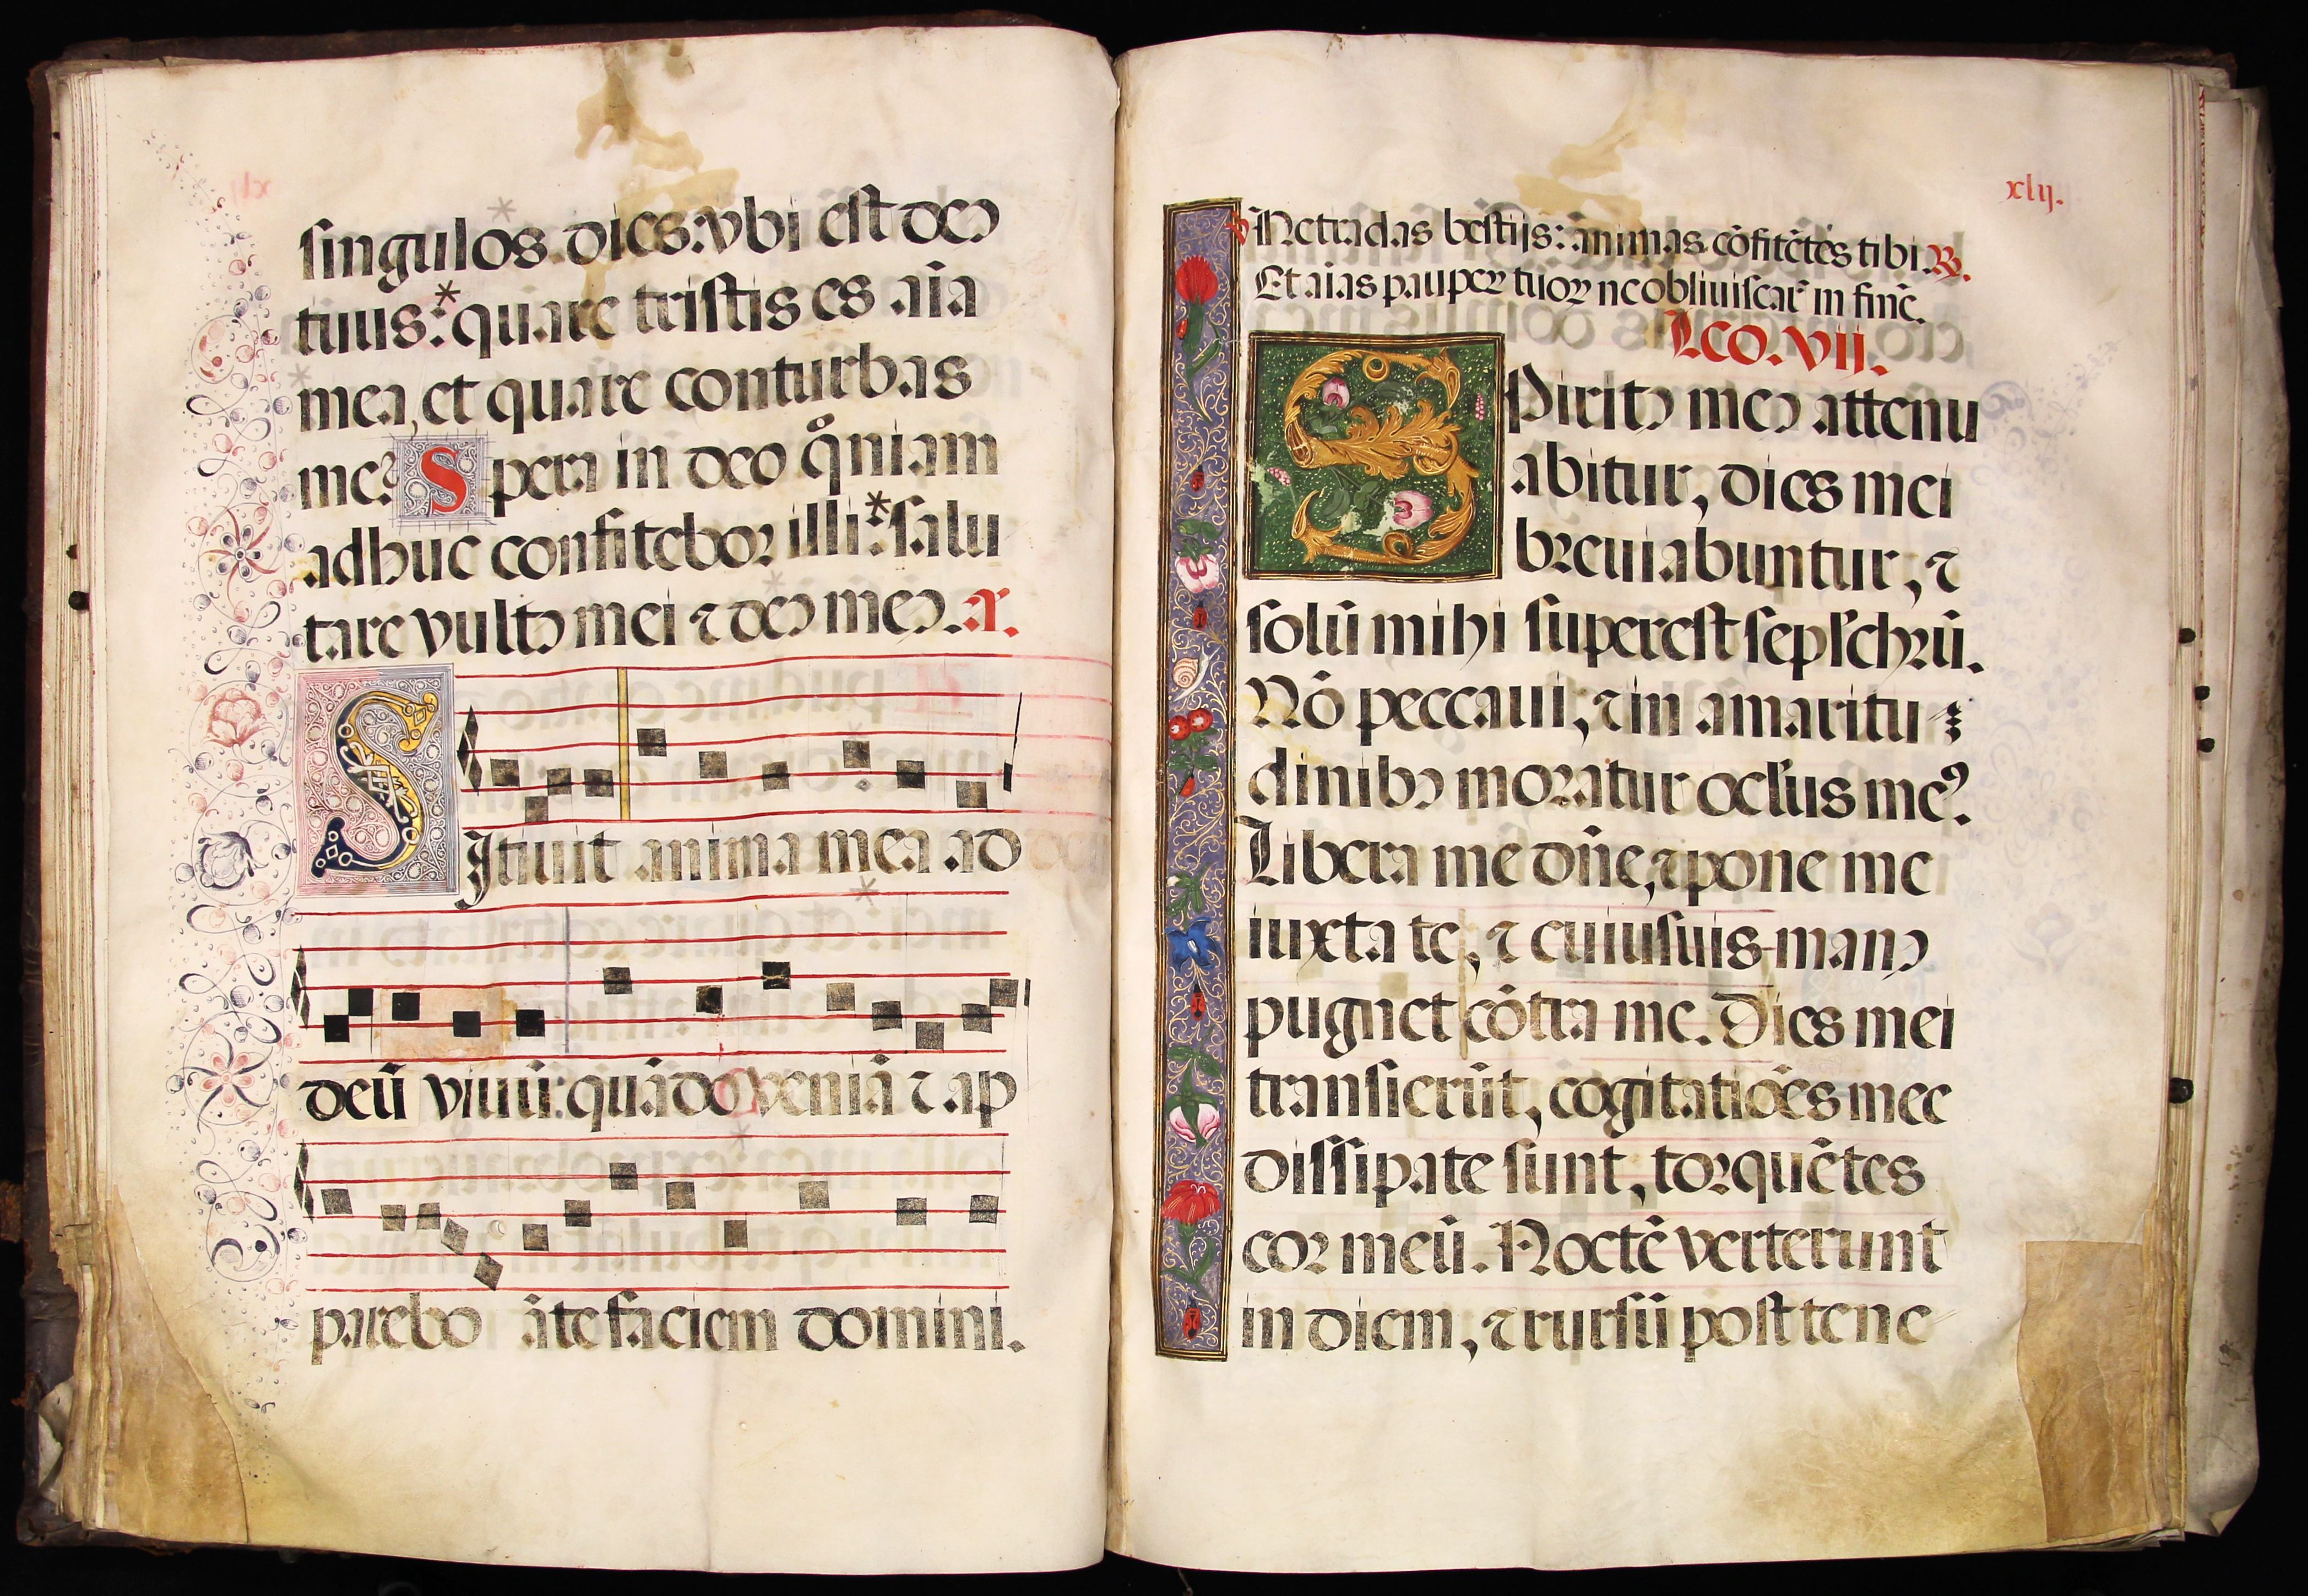 singulos dies: vbi est deꝰ
tuus:* quare tristis es aīa
mea, et quare conturbas
me? Spera in deo qͦniam
adhuc confitebor illi:* salu
tare vultꝰ mei ⁊ deꝰ meꝰ. a.
SItiuit anima mea ad
deū viuū: quādo veniā ⁊ ap
parebo āte faciem domini.
xlij.
v Ne tradas bestijs: animas cōfitētes tibi. R.
Et aīas pauperꝝ tuoꝝ ne obliuiscarˀ in finē.
Lco. vij.
SPiritꝰ meꝰ attenu
abitur, dies mei
breuiabuntur, ⁊
solū mihi superest sepl'chrū.
Nō peccaui, ⁊ in amaritu
dinibꝰ moratur ocl'us meꝰ.
Libera me dn̄e, ⁊ pone me
iuxta te, ⁊ cuiusuis manꝰ
pugnet cōtra me. Dies mei
transierūt, cogitatiōes mee
dissipate sunt, torquētes
cor meū. Noctē verterunt
in diem, ⁊ rursū post tene